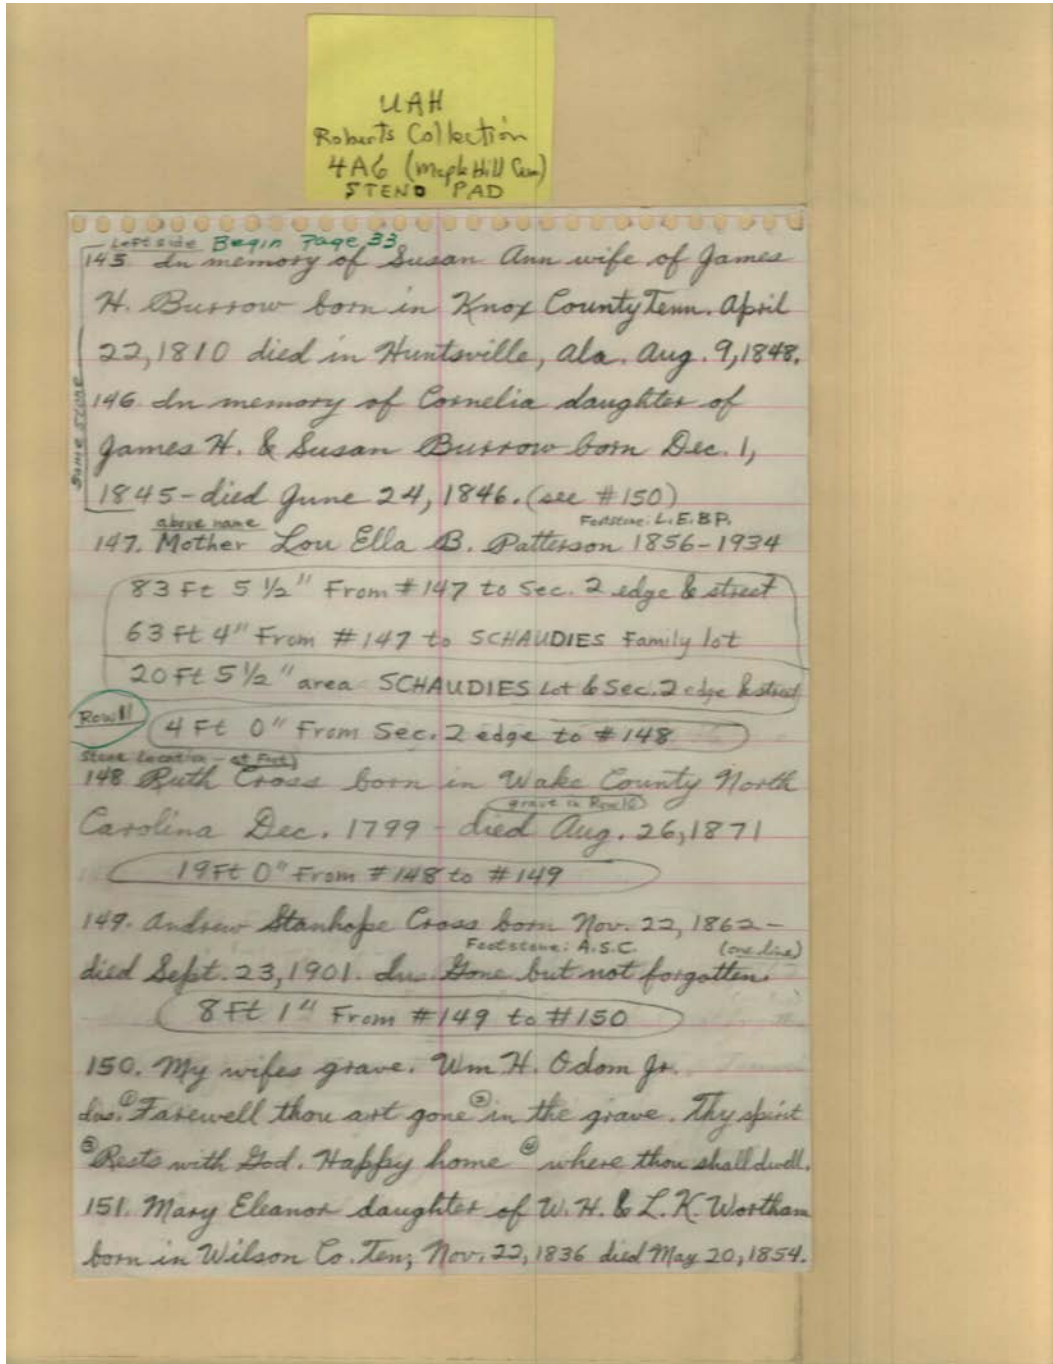 UAH
Roberts Collection
4A6 (Maple Hill Cem)
STENO PAD
Left side Begin Page 33
145 In memory of Susan Ann wife of James
H. Burrow born in Knox County Tenn. April
22, 1810 died in Huntsville, Ala. Aug. 9, 1848.
Same Stone
146. In memory of Cornelia daughter of
James H. & Susan Burrow born Dec. 1,
1845 - died June 24, 1846. (see #150)
above name Footstone: L.E.B.P.
147. Mother Lou Ella B. Patterson 1856-1934
83 Ft 5 1/2" From #147 to Sec. 2 edge & street
63 Ft 4" From #147 to SCHAUDIES Family lot
20 Ft 5 1/2" area SCHAUDIES Lot & Sec. 2 edge & street
Row 11
4 Ft 0" From Sec. 2 edge to #148
Stone Location - at Foot
148 Ruth Cross born in Wake County North
grave in Row 10
Carolina Dec. 1799 - died Aug. 26, 1871
19 Ft 0" From #148 to #149
149. Andrew Stanhope Cross born Nov. 22, 1862 -
Footstone: A.S.C. (one line)
died Sept. 23, 1901. Ins. Gone but not forgotten.
8 Ft 1" From #149 to #150
150. My wifes grave. Wm H. Odom Jr.
Ins. ① Farewell thou art gone ② in the grave. Thy spirit
③ Rests with God. Happy home ④ where thou shall dwell.
151. Mary Eleanor daughter of W. H. & L. K. Wortham
born in Wilson Co. Ten; Nov. 22, 1836 died May 20, 1854.